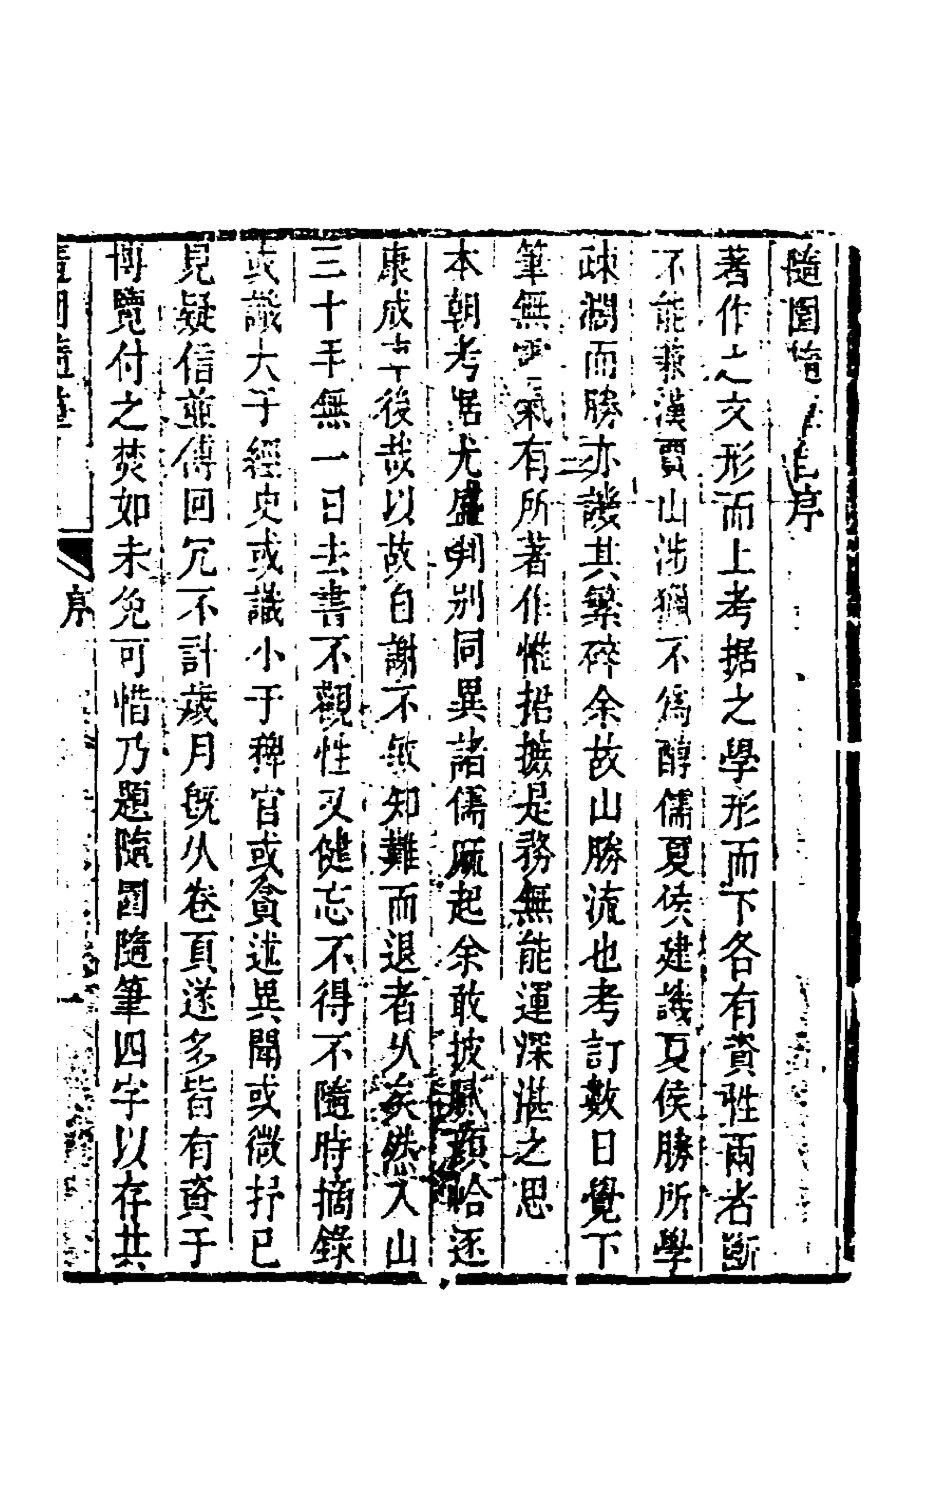 隨園隨 自序
著作之文形而上考据之學形而下各有資性兩者斷
不能兼漢賈山涉獵不爲醇儒夏侯建譏夏侯勝所學
疎濶而勝亦譏其繁碎余故山勝流也考訂數日覺下
筆無靈氣有所著作惟捃摭是務無能運深湛之思
本朝考据尤盛判別同異諸儒麻起余敢披膩顏帢逐
康成 後哉以故自謝不敏知難而退者久矣然入山
三十年無一日去書不觀性又健忘不得不隨時摘錄
或識大于經史或識小于稗官或貪述異聞或微抒己
見疑信並傳回冗不計歲月既久卷頁遂多皆有資于
博覽付之焚如未免可惜乃題隨園隨筆四字以存其
隨園隨筆
序